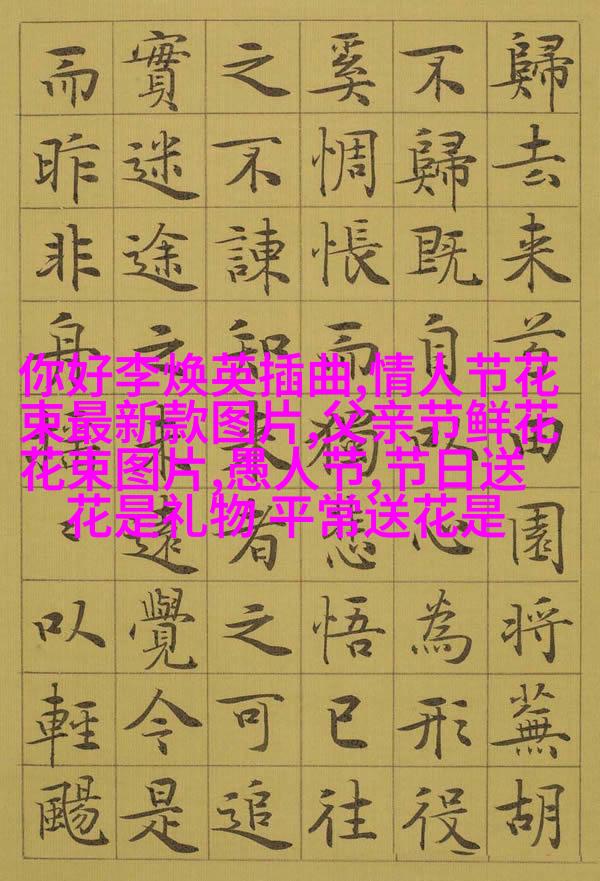 你好李焕英插曲,情人节花
束最新款图片,父亲节鲜花
花束图片,愚人节,节日送
花是礼物 平常送花是
歸去来田園将蕪胡
不歸既自以心為形役
奚惆悵而獨悲悟已往
之不諫知来者之可追
實迷途之未遠覺今是
而昨非舟以輕颺